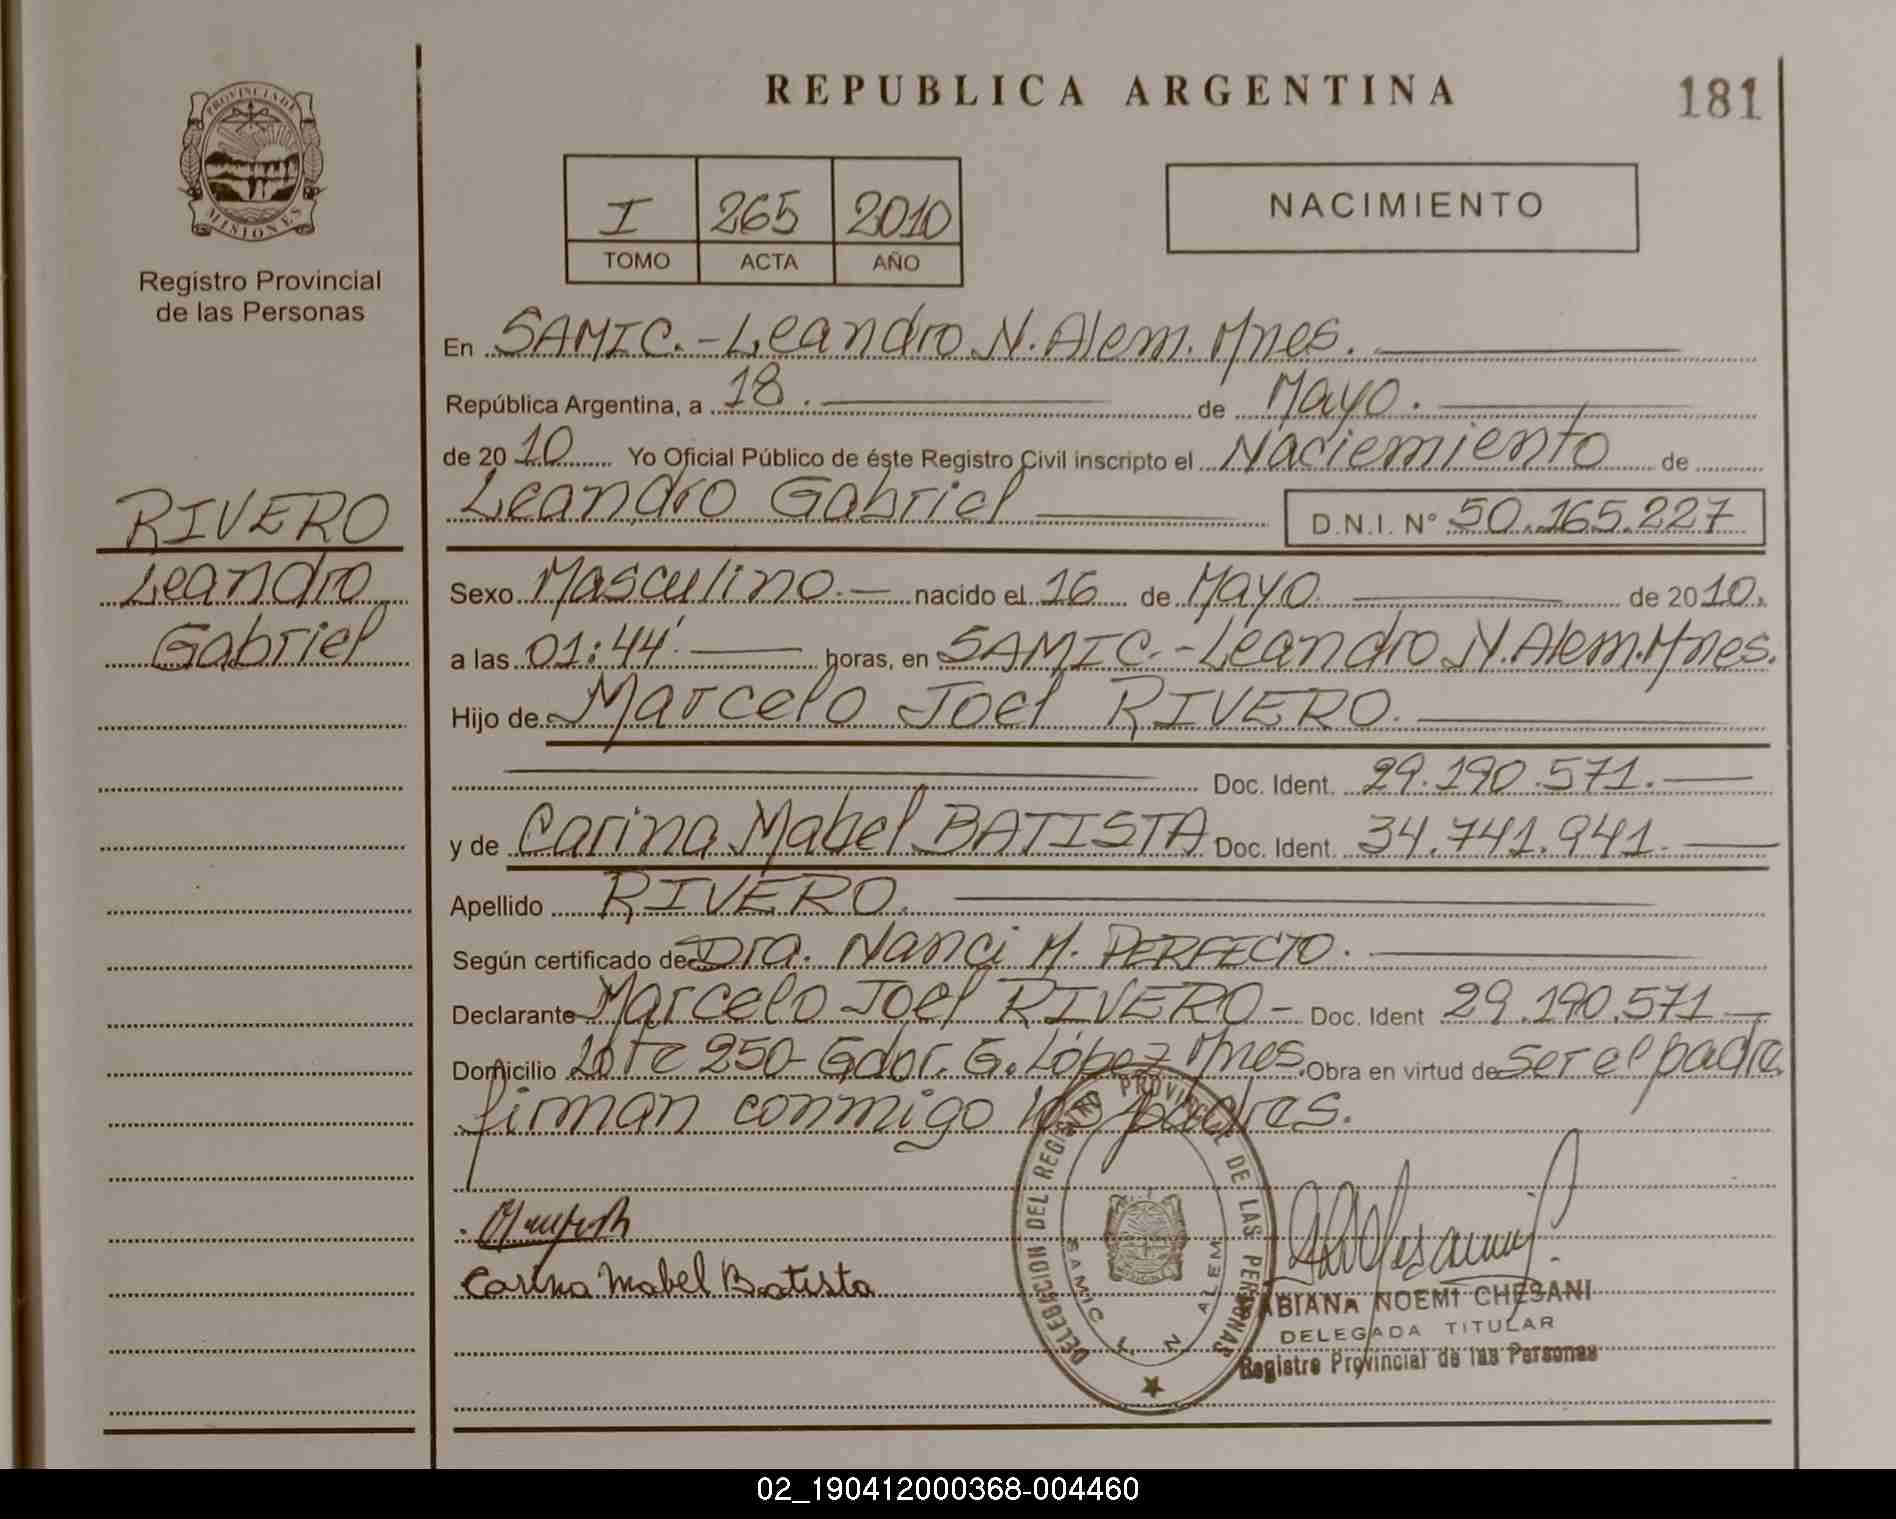 REPUBLICA ARGENTINA
181
PROVINCIA DE
MISIONES
Registro Provincial
de las Personas
I 265 2010
TOMO ACTA AÑO
NACIMIENTO
En SAMIC.-Leandro N. Alem. Mnes.
República Argentina, a 18. de Mayo.
de 2010 Yo Oficial Público de éste Registro Civil inscripto el Naciemiento de
Leandro Gabriel D.N.I. N° 50.165.227
RIVERO
Leandro
Gabriel
Sexo Masculino.- nacido el 16 de Mayo de 2010.
a las 01:44'. horas, en SAMIC.-Leandro N. Alem. Mnes.
Hijo de Marcelo Joel RIVERO.
Doc. Ident. 29.190.571.
y de
y de Carina Mabel BATISTA Doc. Ident. 34.741.941.
Apellido RIVERO.
Según certificado de Dra. Nanci M. PERFECTO.
Declarante Marcelo Joel RIVERO- Doc. Ident 29.190.571
Domicilio Lote 250- Gdor. G. López Mnes. Obra en virtud de ser el padre
firman conmigo los padres.
Carina Mabel Batista
DELEGACION DEL REGISTRO PROVINCIAL DE LAS PERSONAS
SAMIC L. N. ALEM
FABIANA NOEMI CHESANI
DELEGADA TITULAR
Registro Provincial de las Personas
02_190412000368-004460